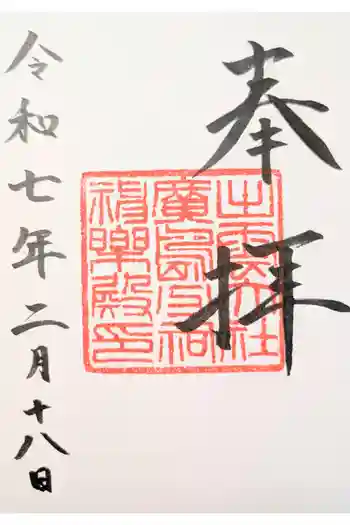 奉拝
出雲大社
廣島分祠
神樂殿印
令和七年二月十八日